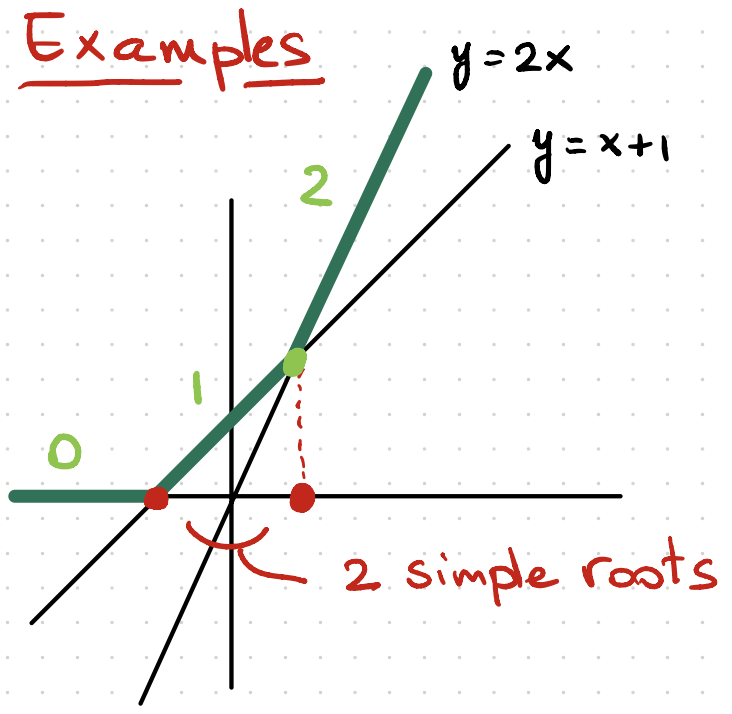 Examples
y = 2x
y = x + 1
2
1
0
2 simple roots